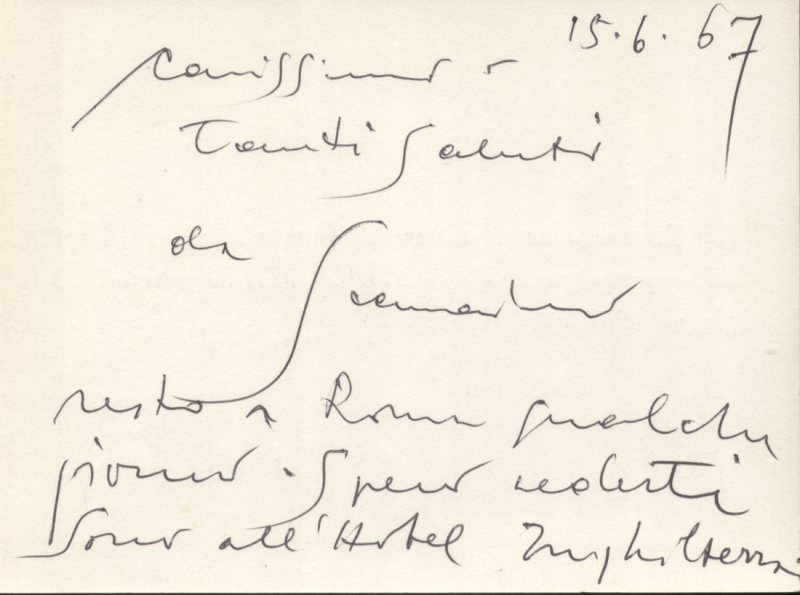 15.6.67
Carissimo -
Tanti saluti
da Scanavino
resto a Roma qualche
giorno. Spero vederti
Sono all'Hotel Inghilterra